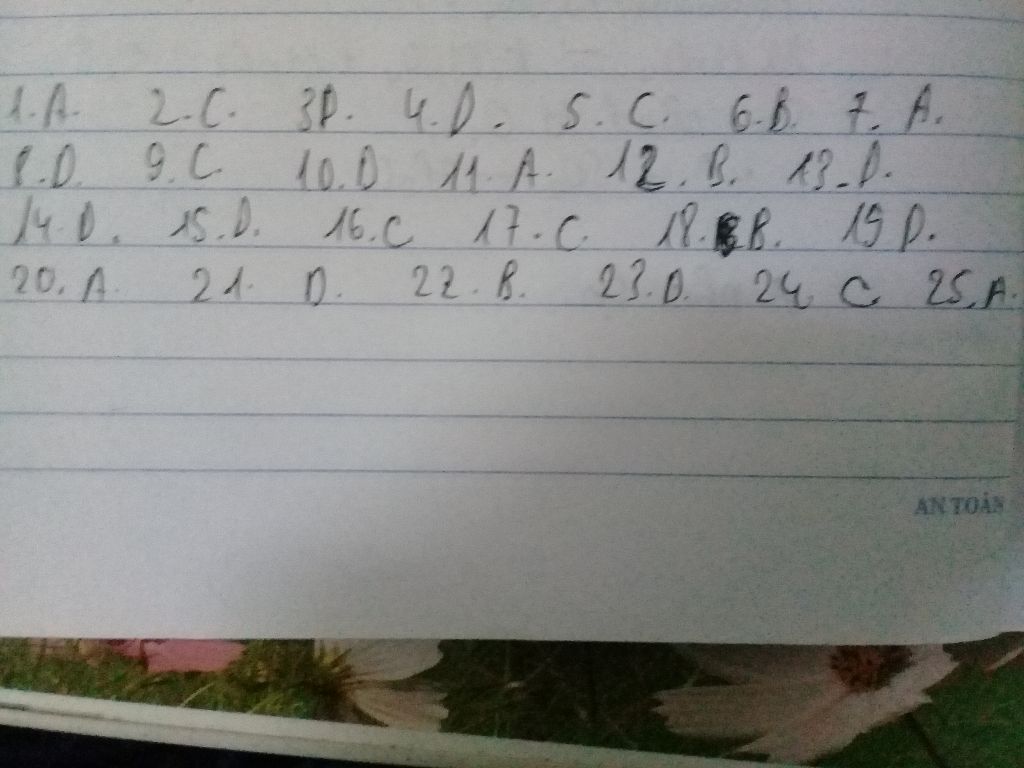 1.A. 2.C. 3D. 4.D. 5.C. 6.B. 7.A.
8.D. 9.C. 10.D 11.A. 12.B. 13.D.
14.D. 15.D. 16.C 17.C. 18.B. 19D.
20.A. 21.D. 22.B. 23.D. 24 C 25.A.
AN TOÀN